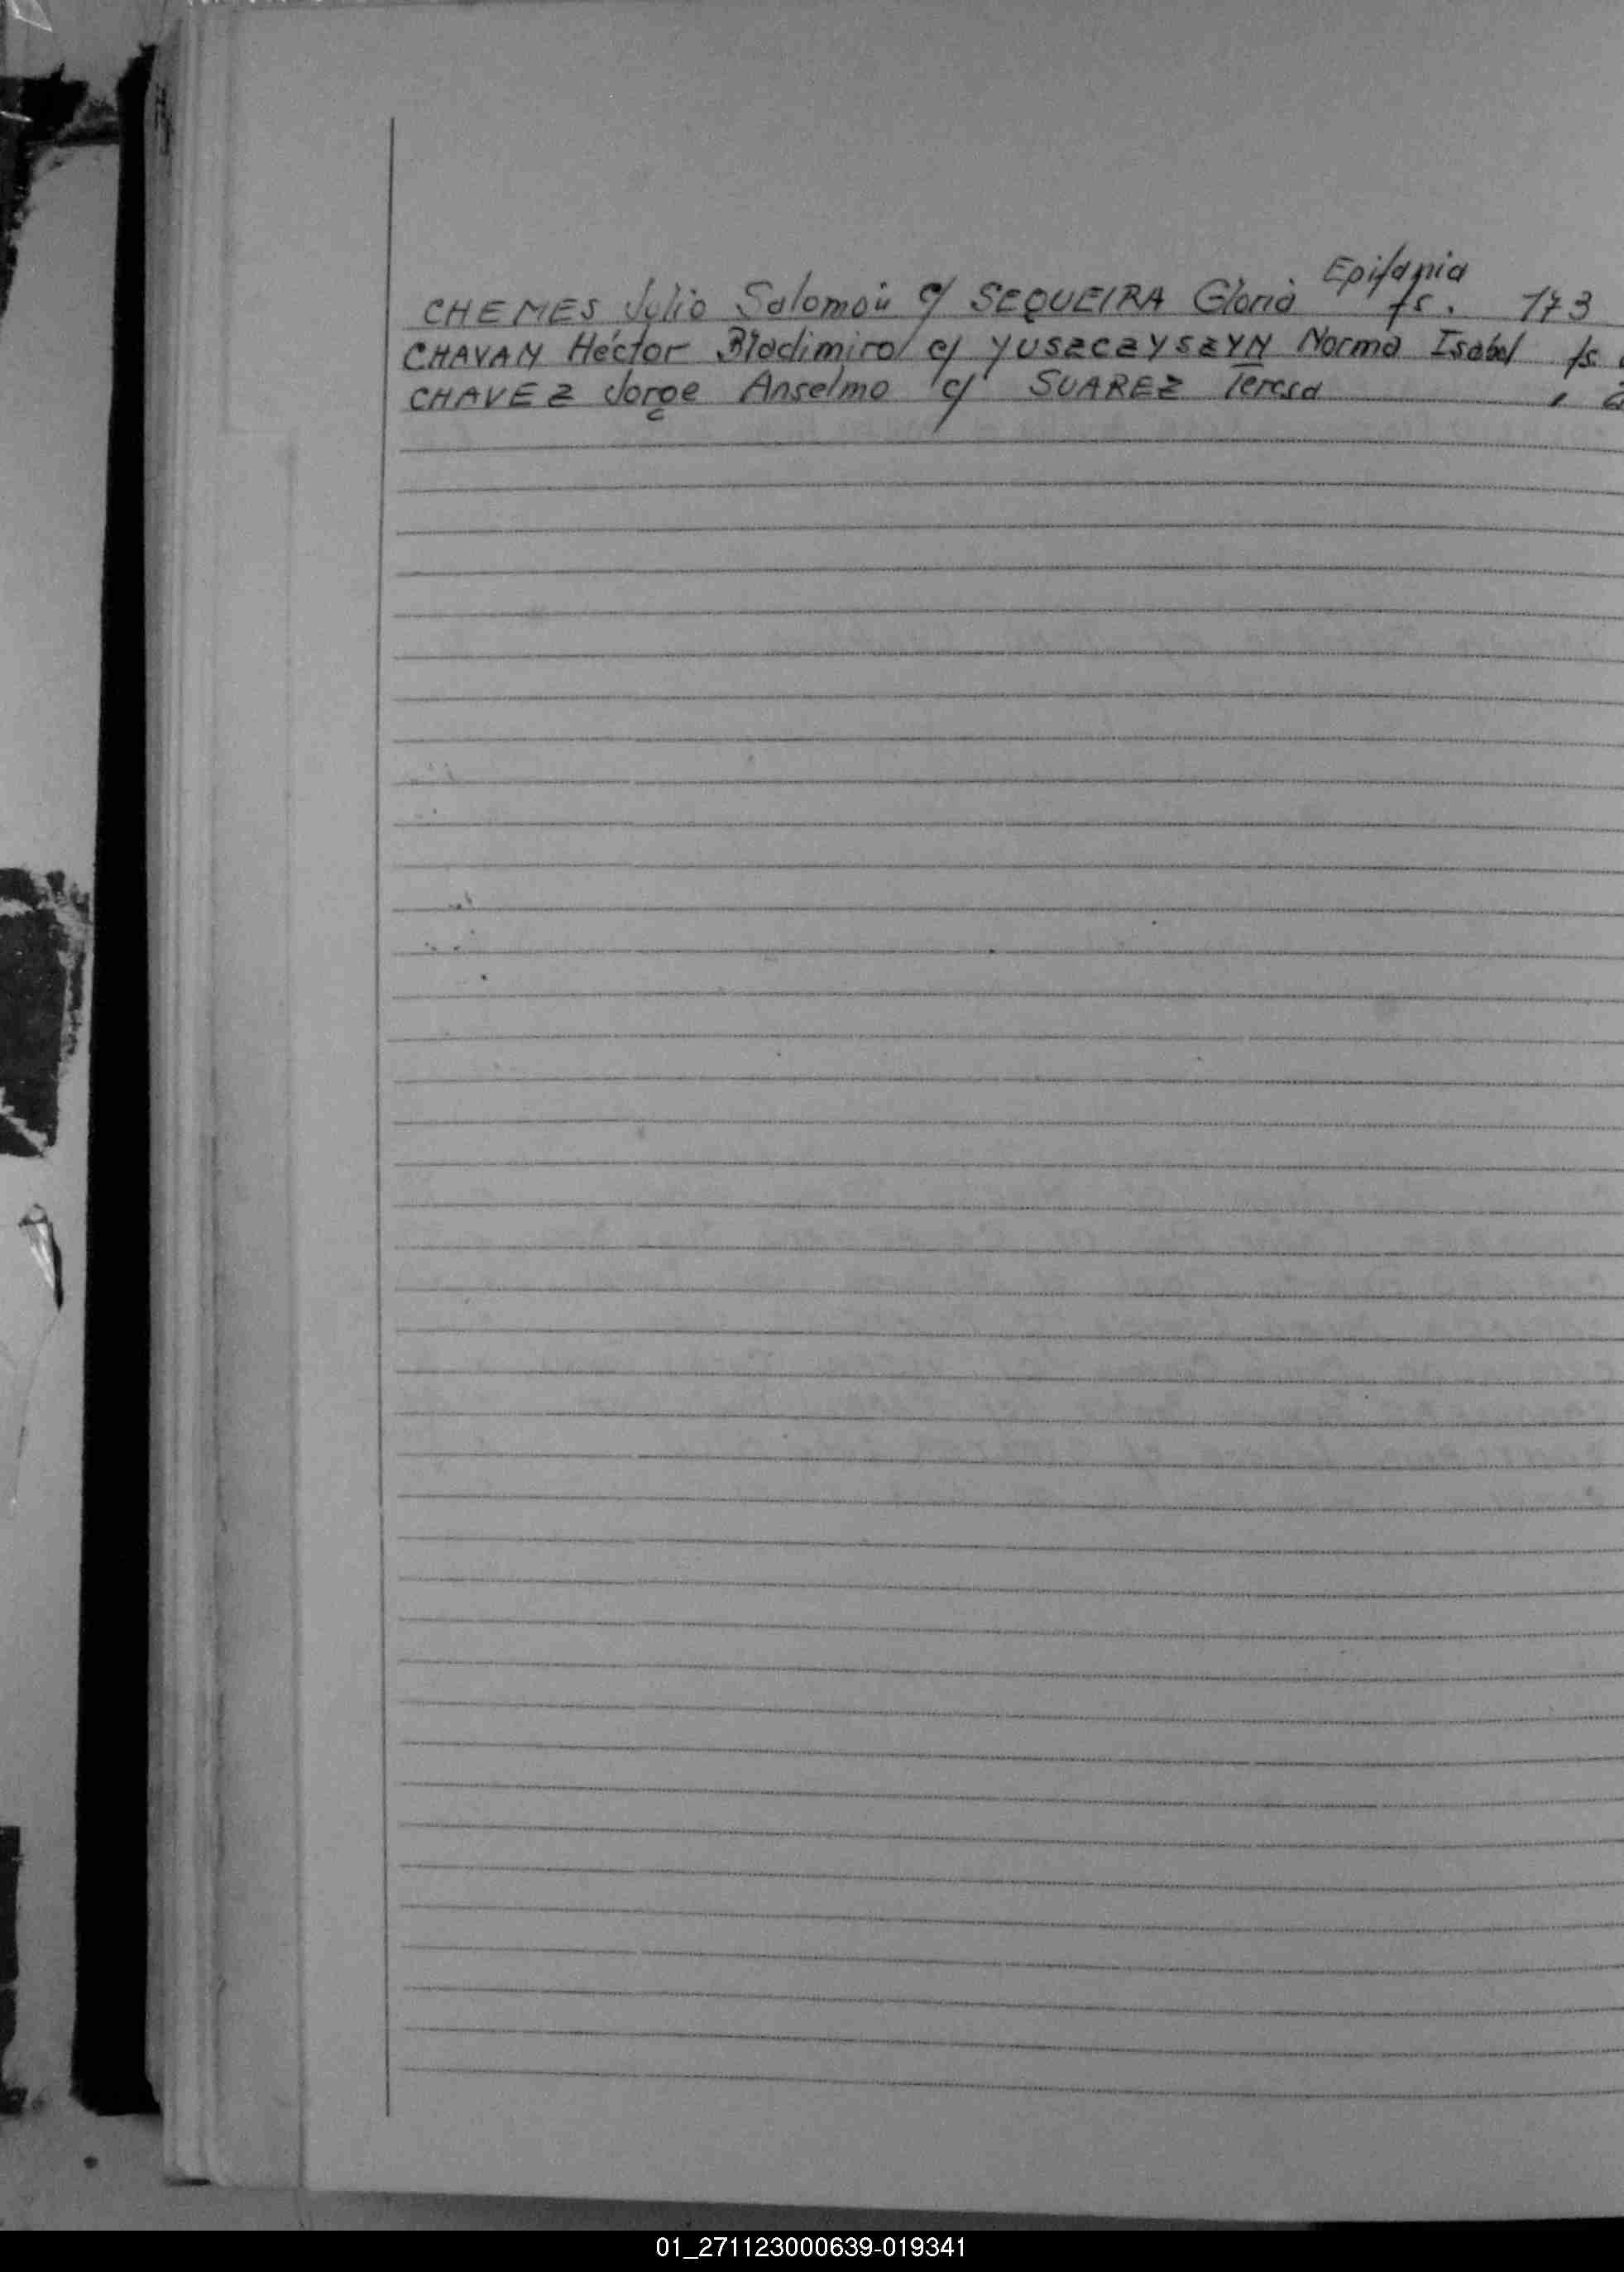 CHEMES Julio Salomón c/ SEQUEIRA Gloria Epifania fs. 173
CHAVAN Héctor Bladimiro c/ YUSZCZYSZYN Norma Isabel fs
CHAVEZ Jorge Anselmo c/ SUAREZ Teresa
01_271123000639-019341